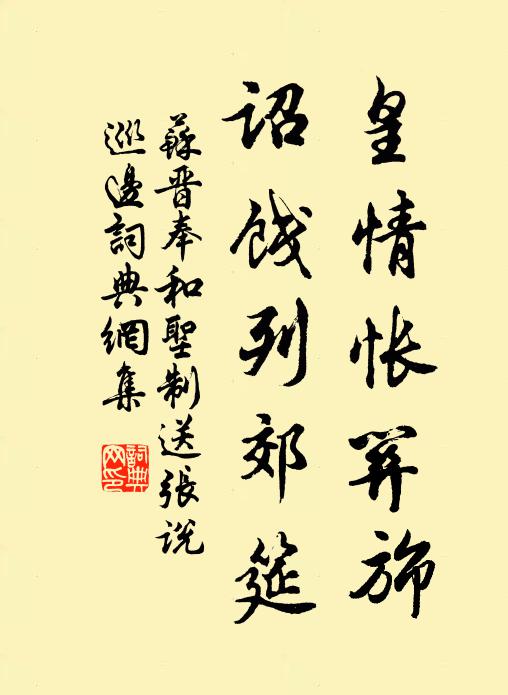 皇情怅筭旆
诏饯列郊筵
蘇晋奉和聖制送張说
巡邊詞典網集
詞典网印